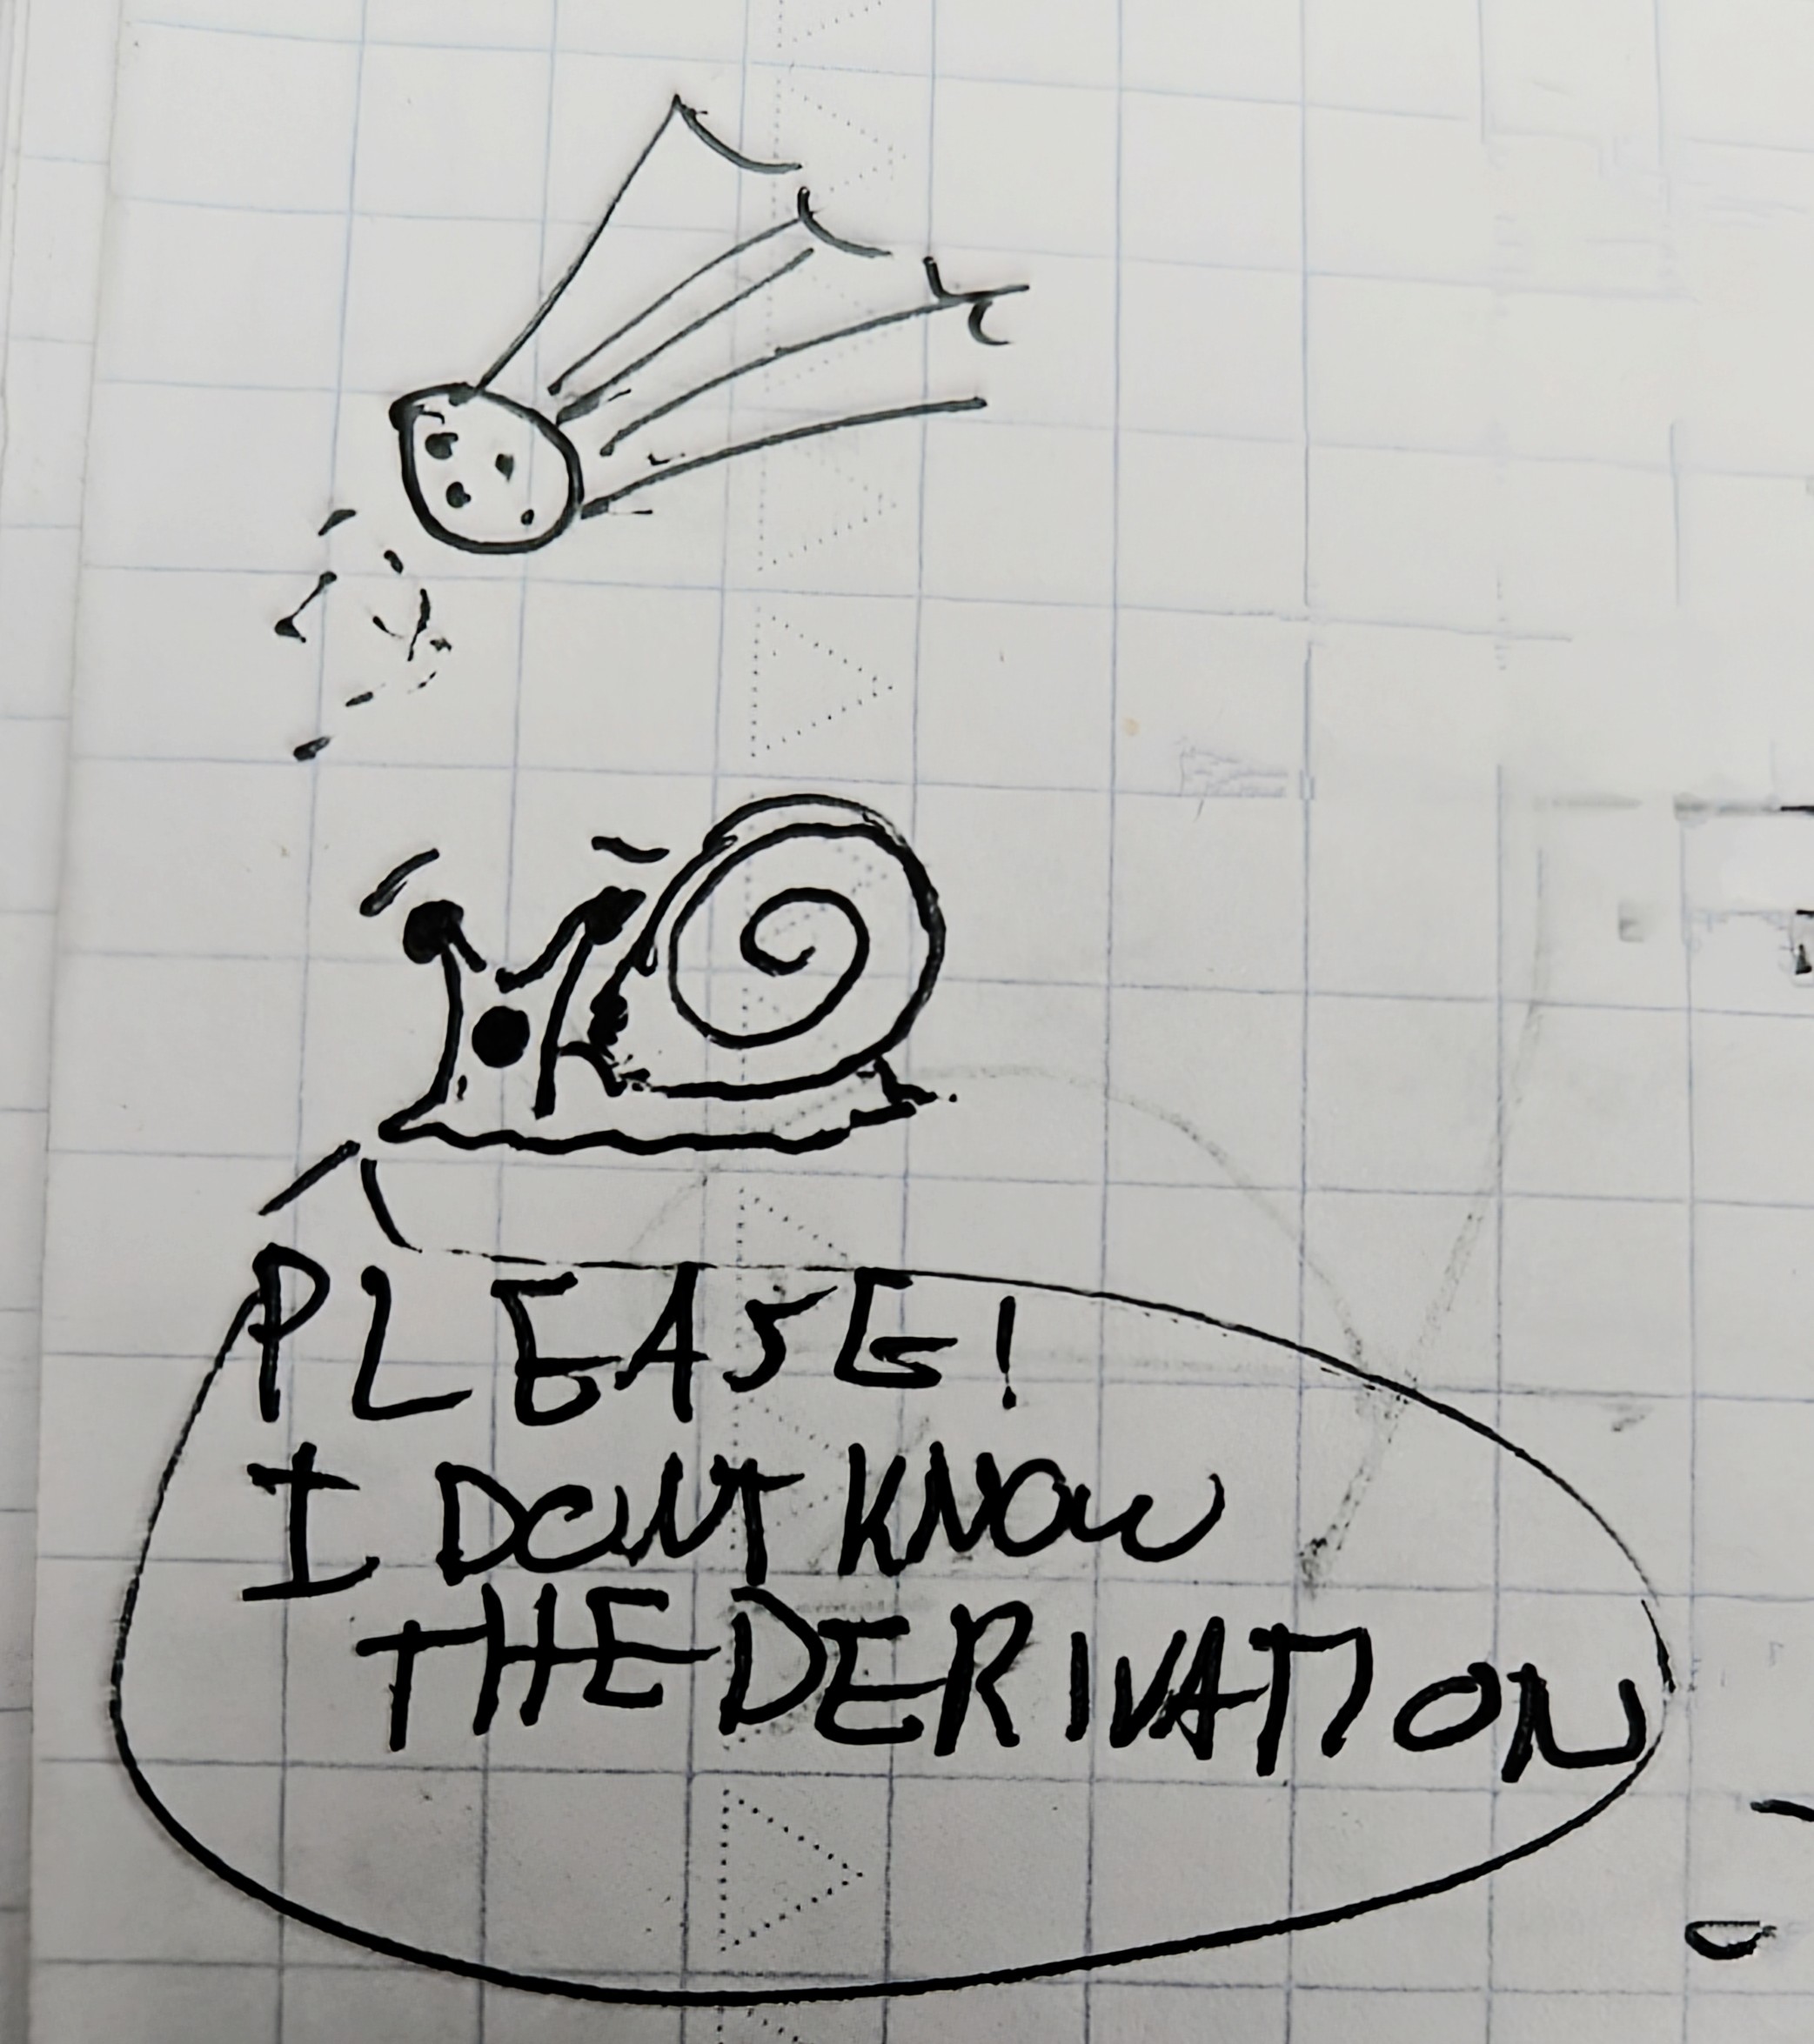 PLEASE!
I DONT KNOW
THE DERIVATION